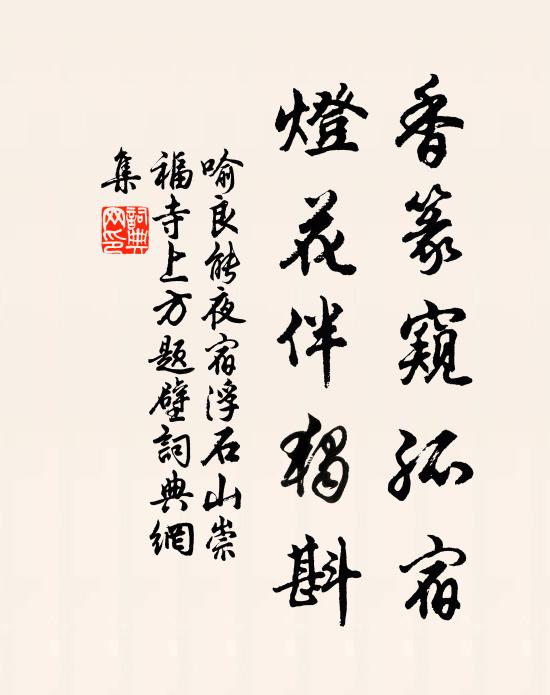 香篆窺孤宿
燈花伴獨斟
喻良能夜宿浮石山崇
福寺上方題壁詞典網
集
詞典
网印